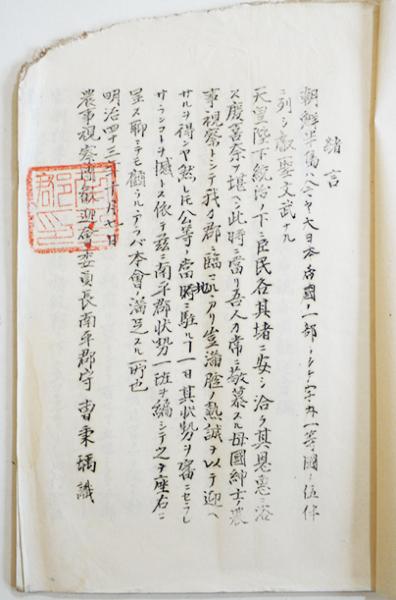 緒言
朝鮮半島ハ今ヤ大日本帝國ノ一部トシテ宇内一等國ノ伍伴
ニ列シ叡聖文武ナル
天皇陛下統治ノ下ニ臣民各其堵ニ安シ洽ク其恩惠ニ浴
ス慶喜奈ソ堪ヘン此時ニ當リ吾人カ常ニ敬慕スル母國紳士ノ農
事視察トシテ我カ郡ニ臨マルヽアリ豈滿腔ノ熱誠ヲ以テ迎ヘ
サルヲ得ンヤ然レトモ公等ノ當時ニ駐ルヿ一日其狀勢ヲ審ニセラレ
サランコヿヲ憾トス依テ茲ニ南平郡狀勢一班ヲ編シテ之ヲ座右ニ
呈ス聊ニテモ顧ミルアラハ本會ノ滿足スル所也
明治四十三年十月七日
農事視察團歡迎會委員長南平郡守 曺秉 識